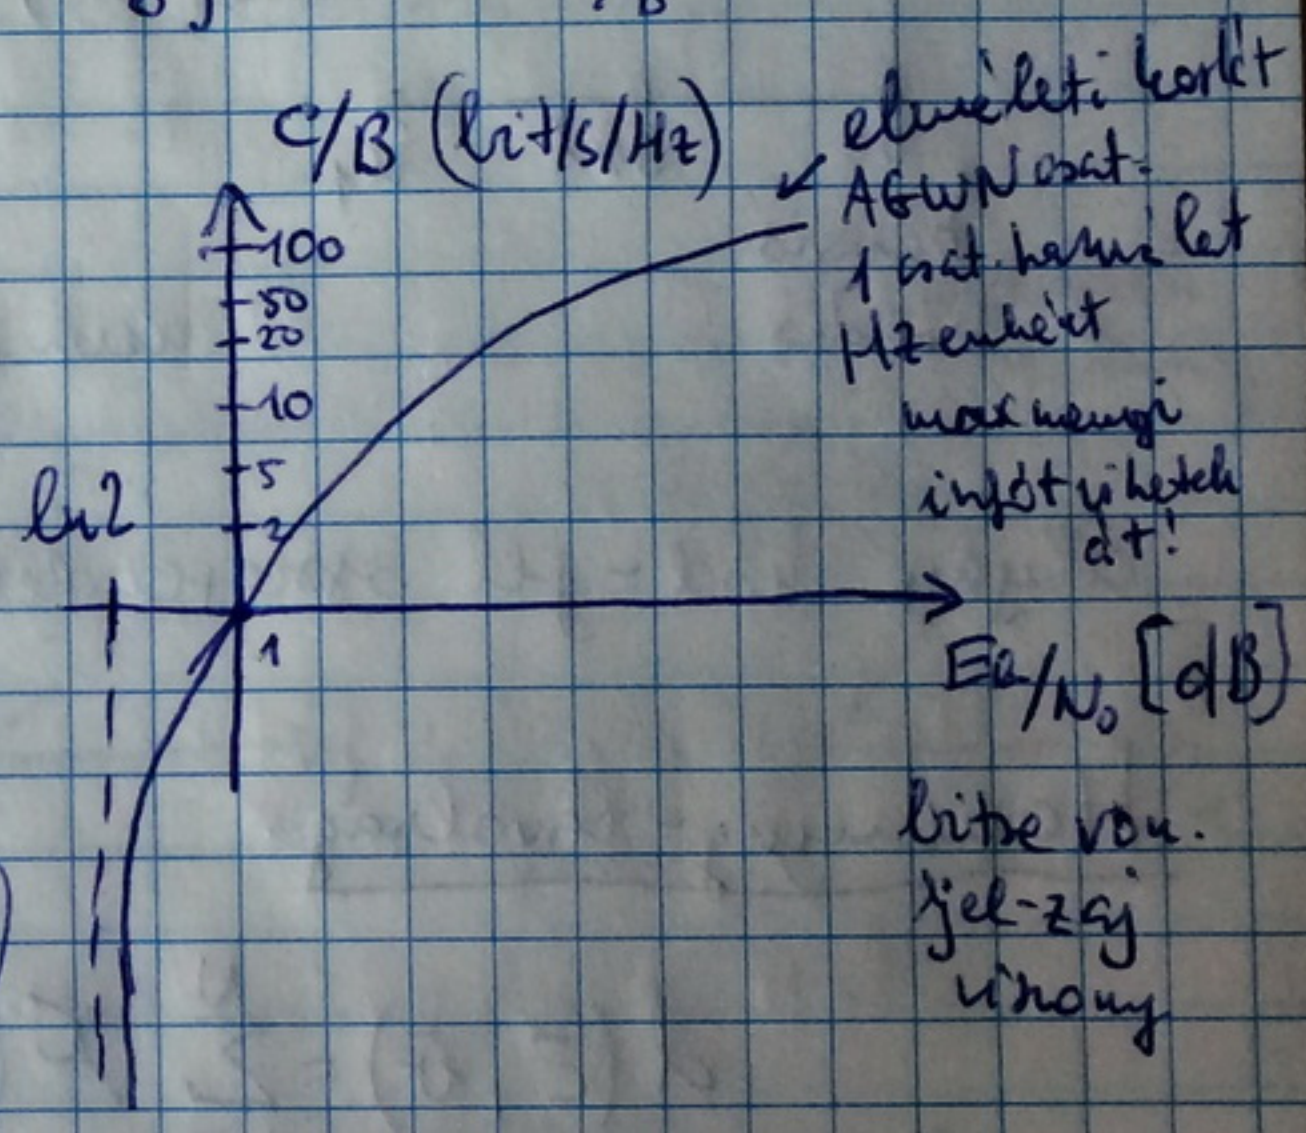 C/B (bit/s/Hz)
elméleti korlát
AGWN csat.
1 csat. használat
Hz enként
max mennyi
infót vihetek
át!
100
50
20
10
5
2
ln2
1
Eb/N₀ [dB]
bitre von.
jel-zaj
viszony